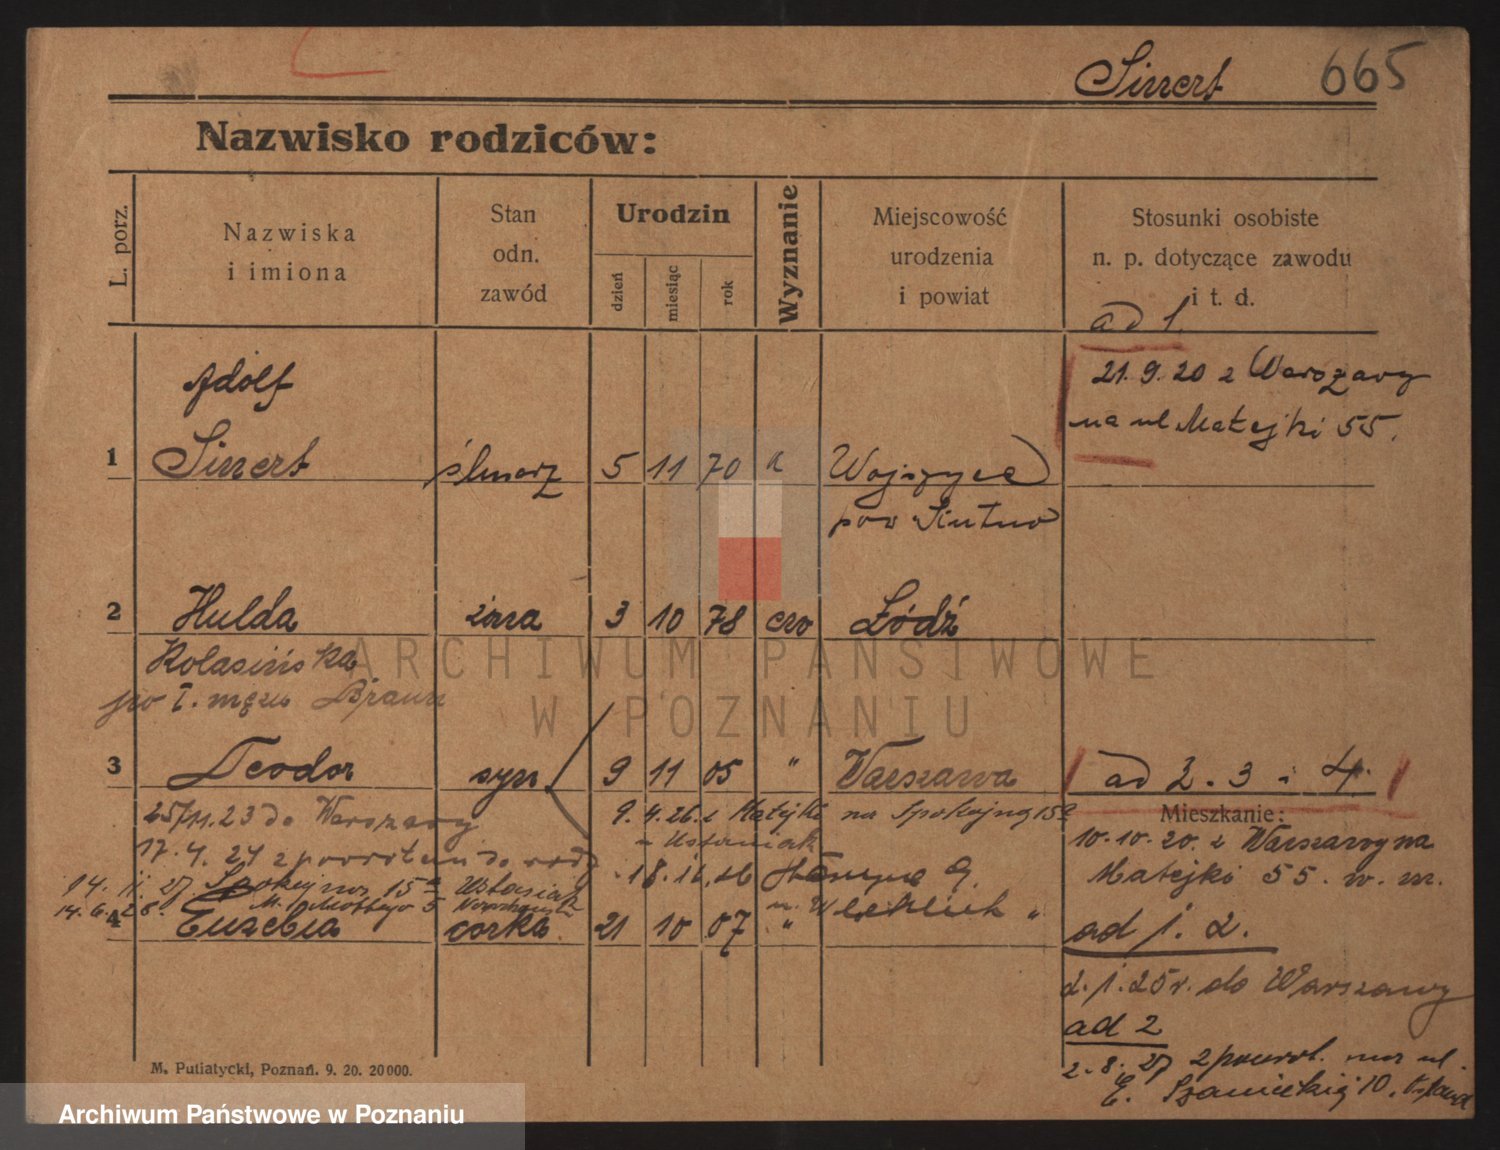 Sinnert 665
Nazwisko rodziców:
L. porz.
Nazwiska
i imiona
Stan
odn.
zawód
Urodzin
dzień
miesiąc
rok
Wyznanie
Miejscowość
urodzenia
i powiat
Stosunki osobiste
n. p. dotyczące zawodu
i t. d.
ad 1.
21.9.20 z Warszawy
na ul Matejki 55.
Adolf
1 Sinnert ślusarz 5 11 70 Wojszyce
pow Kutno
2 Hulda żona 3 10 78 ew Łódź
Kolasińska
po I. mężu Braun
3 Teodor syn 9 11 05 " Warszawa
ad 2. 3 i 4.
Mieszkanie:
25/11.23 do Warszawy
9.4.26. z Matejki na Spokojną 15a
u Ustaniak
17.4.24 z powrotem do
10.10.20. z Warszawy na
Matejki 55.
14. 11. 27. Spokojna 15a
14. 6. 28.
4 Euzebia córka 21 10 07 " "
ad 1. 2.
2.1.25 r. do Warszawy
ad 2
2.8.27 z powrot. na ul.
E. Szanieckiej 10.
M. Putiatycki, Poznań. 9. 20. 20000.
ARCHIWUM PAŃSTWOWE
W POZNANIU
Archiwum Państwowe w Poznaniu